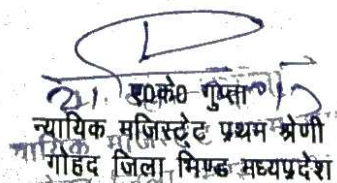 ए0के0 गुप्ता
न्यायिक मजिस्ट्रेट प्रथम श्रेणी
गोहद जिला भिण्ड मध्यप्रदेश